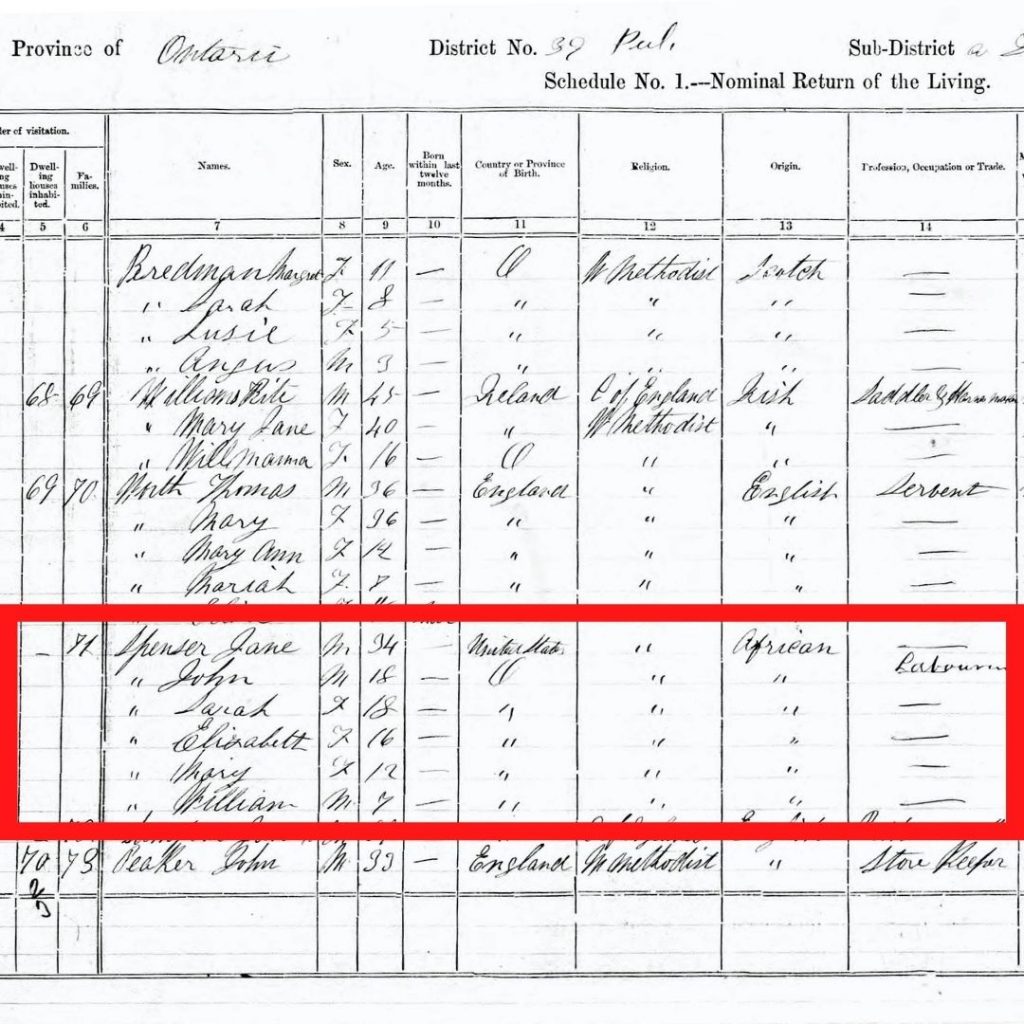 Province of Ontario District No. 39 Peel. Sub-District a
Schedule No. 1.---Nominal Return of the Living.
der of visitation.
Dwelling houses inhabited. Families. Names. Sex. Age. Born within last twelve months. Country or Province of Birth. Religion. Origin. Profession, Occupation or Trade.
4 5 6 7 8 9 10 11 12 13 14
Bredman Margret F 11 — O W Methodist Scotch —
" Sarah F 8 — " " " —
" Susie F 5 — " " " —
" Angus M 3 — " " " —
68 69 M 45 — Ireland C of England Irish Saddler &
" Mary Jane F 40 — " W Methodist " —
" F 16 — O " " —
69 70 Worth Thomas M 36 — England " English Servent
" Mary F 36 — " " " —
" Mary Ann F 14 — " " " —
" Mariah F 8 — " " " —
– 71 Spenser Jane M 34 — United States " African —
" John M 18 — O " " Labourer
" Sarah F 18 — " " " —
" Elizabeth F 16 — " " " —
" Mary F 12 — " " " —
" William M 7 — " " " —
70 73 Peaker John M 33 — England W Methodist " Store Keeper